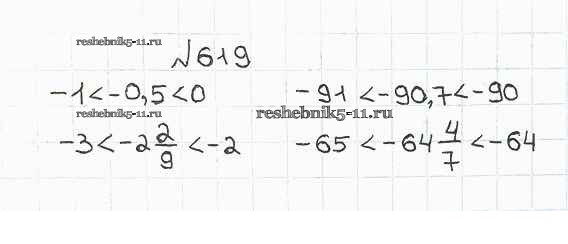 reshebnik5-11.ru
№619
-1<-0,5<0 -91<-90,7<-90
reshebnik5-11.ru reshebnik5-11.ru
-3<-2 2/9<-2 -65<-64 4/7<-64